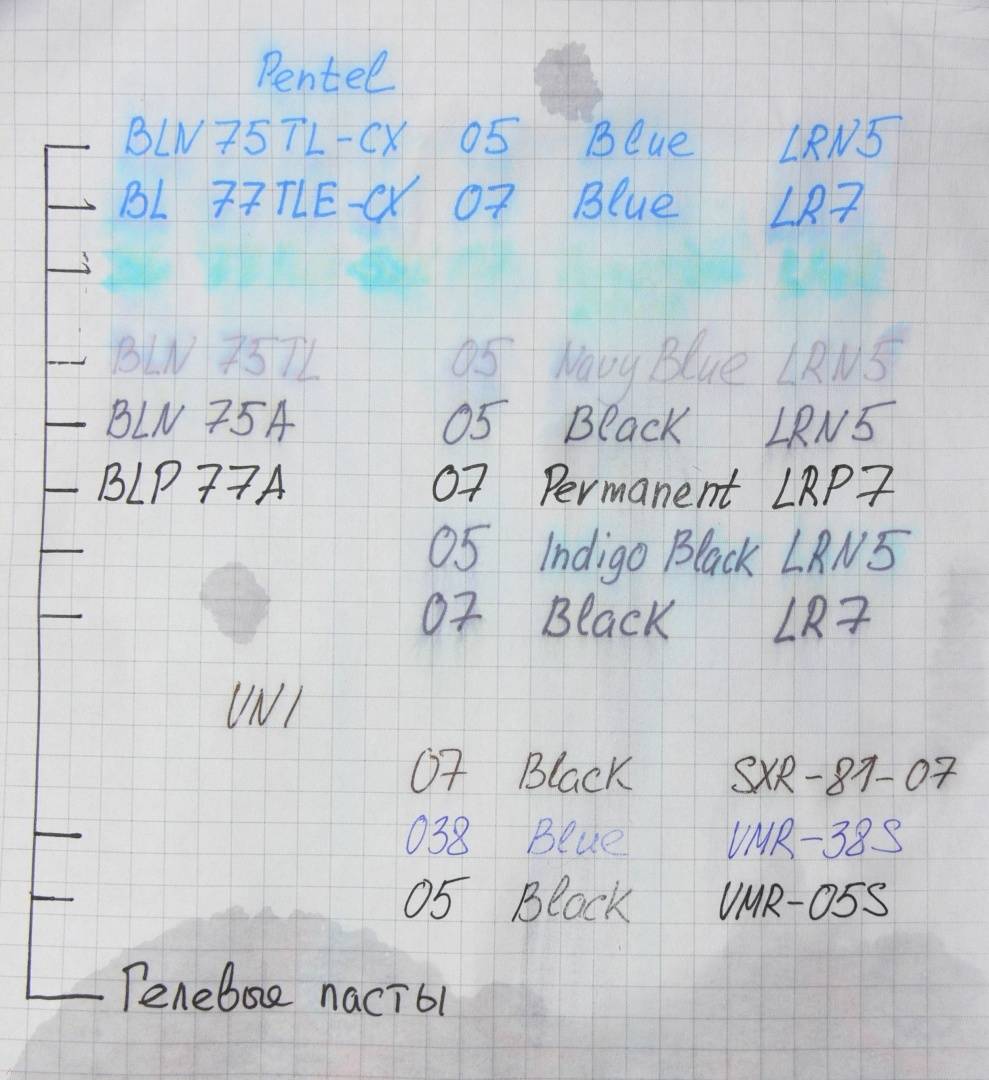 Pentel
BLN 75TL-CX 05 Blue LRN5
BL 77TLE-CX 07 Blue LR7
BLN 75TL 05 Navy Blue LRN5
BLN 75A 05 Black LRN5
BLP 77A 07 Permanent LRP7
05 Indigo Black LRN5
07 Black LR7
UNI
07 Black SXR-81-07
038 Blue UMR-38S
05 Black UMR-05S
Гелевые пасты